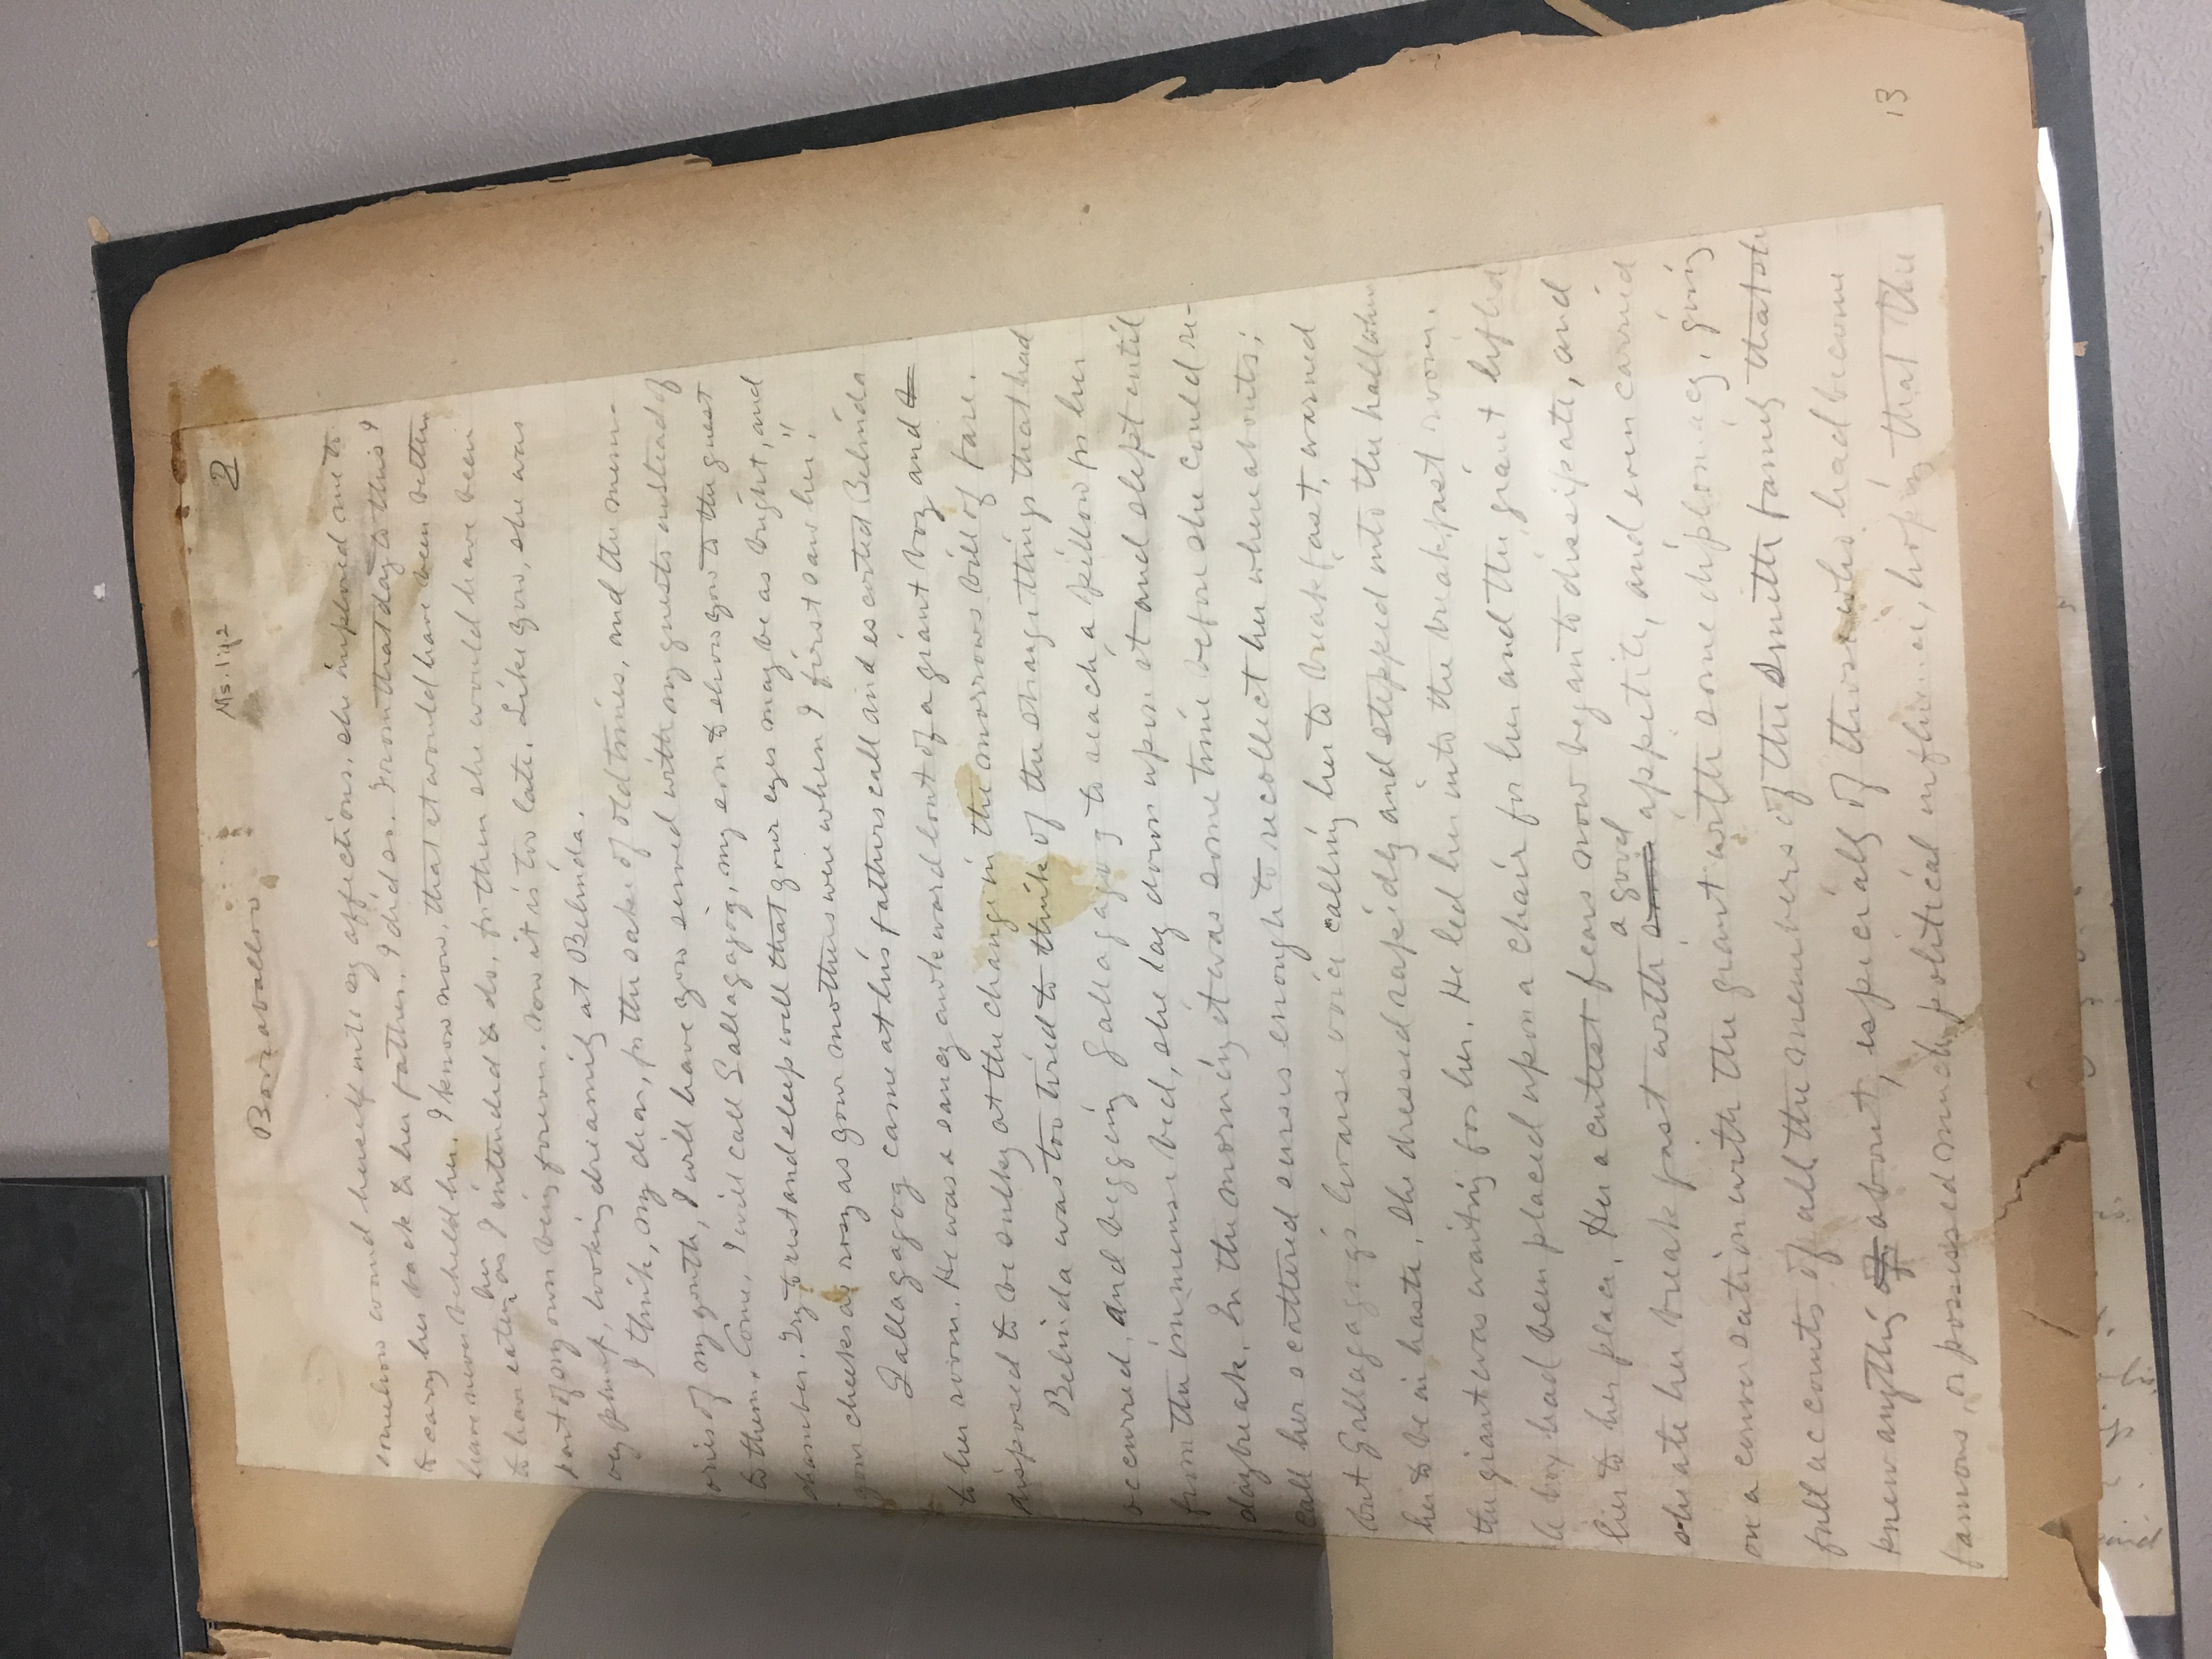 Ms. 142
2
Borcaballoo
somehow wound herself into my affections. she implored me to
to carry her back to her father. I did so. From that day to this I
have never beheld her. I know now, that it would have been better
her
to have eaten as I intended to do, for then she would have been
part of my own being forever. Now it is too late. Like you, she was
very plump, looking dreamily at Belinda.
I think, my dear, for the sake of old times, and the mem-
ories of my youth, I will have you served with my guests instead of
to them. Come, I will call Gallagagog, my son to show you to the guest
chamber. Try to rest and sleep well that your eyes may be as bright, and
your cheeks as rosy as your mothers were when I first saw her."
Gallagagog came at his fathers call and escorted Belinda
to her room. He was a saucy awkward lout of a giant boy and
disposed to be sulky at the change in the morrows bill of fare.
Belinda was too tired to think of the strange things that had
occurred, and begging Gallagagog to reach a pillow for her
from the immense bed, she lay down upon it and slept until
daybreak. In the morning it was some time before she could re-
call her scattered senses enough to recollect her whereabouts;
but Gallagagog's hoarse voice calling her to breakfast, warned
her to be in haste, She dressed rapidly and stepped into the hall where
the giant was waiting for her. He led her into the breakfast room.
A box had been placed upon a chair for her and the giant lifted
her to her place. Her acutest fears now began to dissipate, and
a good
she ate her breakfast with some appetite, and even carried
on a conversation with the giant with some diplomacy, giving
full accounts of all the members of the Smith family that she
knew anything of about, especially of those who had become
famous, or possessed much political influence, hoping that the
13